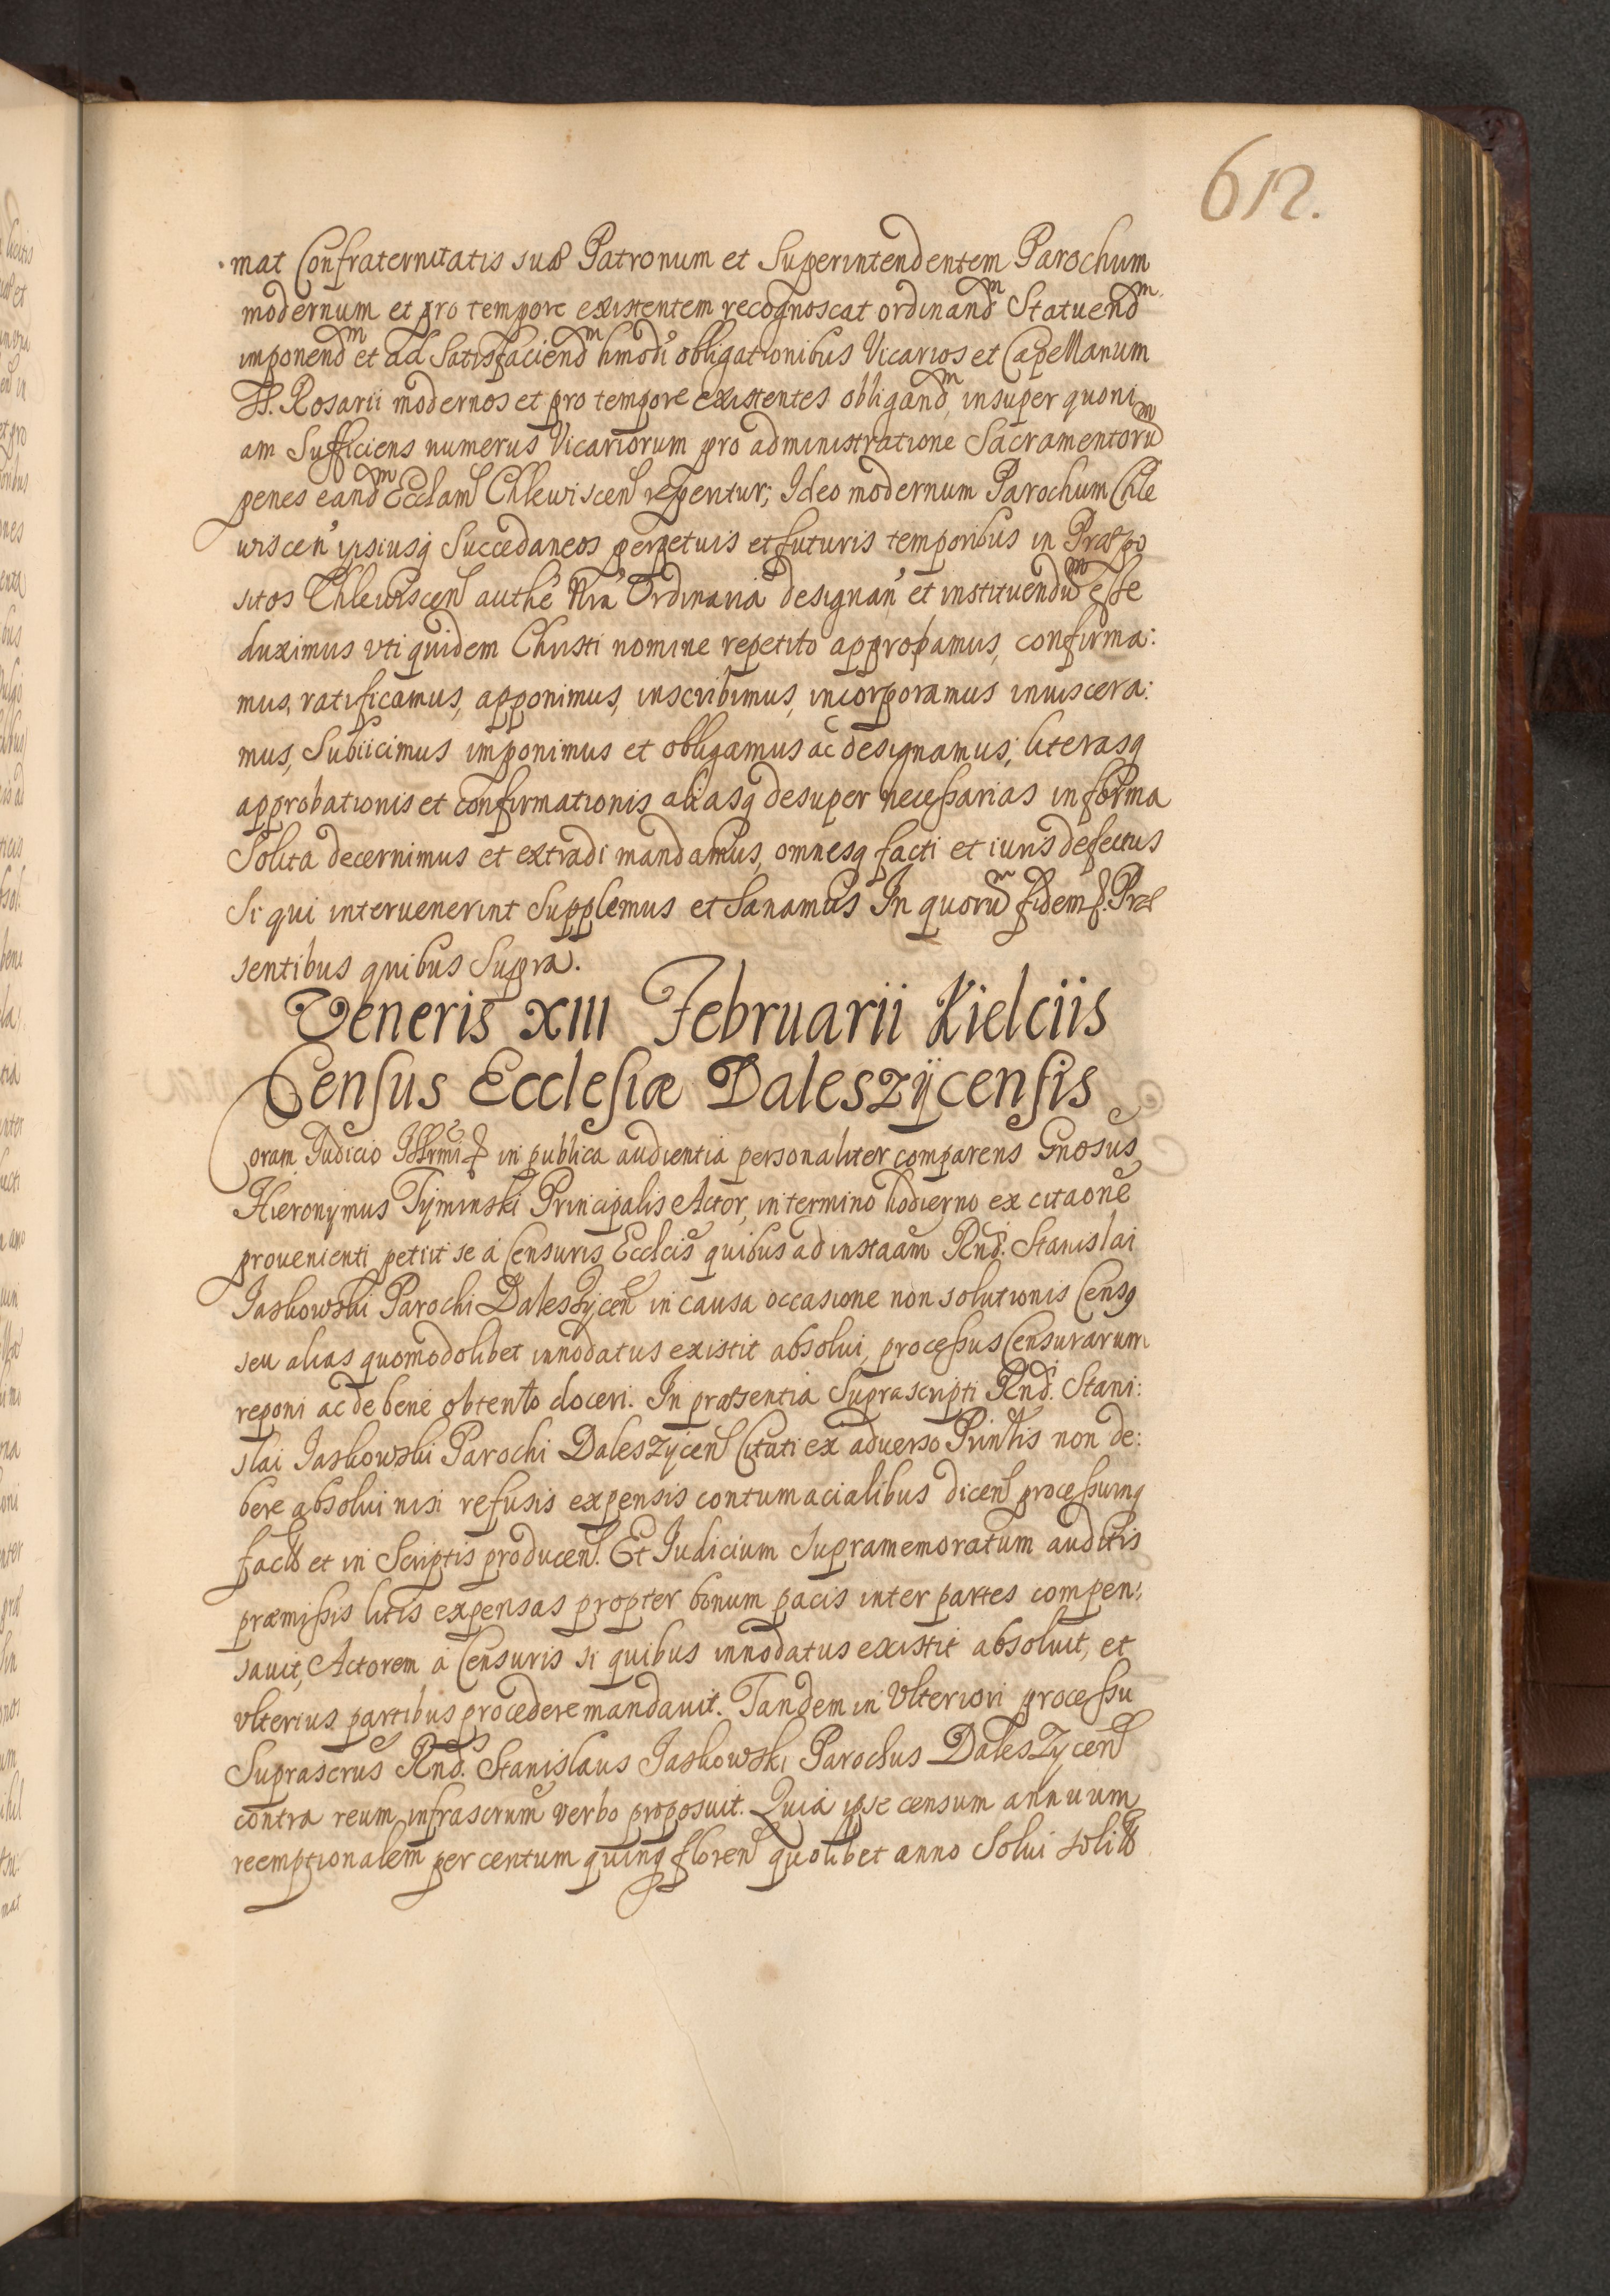 612.
mat Confraternitatis suæ Patronum et Superintendentem Parochum
modernum et pro tempore existentem recognoscat ordinandᵐ Statuendᵐ
imponendᵐ et ad Satisfaciendᵐ hmodi obligationibus Vicarios et Capellanum
SS. Rosarii modernos et pro tempore existentes obligandᵐ, insuper quoni
am Sufficiens numerus Vicariorum pro administratione Sacramentoruᵐ
penes eandᵐ Ecclam Chlewiscen reperitur; Ideo modernum Parochum Chle
wiscen ipsiusq Succedaneos perpetuis et futuris temporibus in Præpo
sitos Chlewiscen authe Nra Ordinaria designan et instituenduᵐ esse
duximus vti quidem Christi nomine repetito approbamus, confirma:
mus, ratificamus, apponimus, inscribimus, incorporamus inuiscera:
mus, Subiicimus imponimus et obligamus ac designamus; literasq
approbationis et confirmationis aliasq desuper necessarias in forma
Solita decernimus et extradi mandamus, omnesq facti et iuris defectus
Si qui interuenerint Supplemus et Sanamus In quoruᵐ fidem p. Præ
sentibus quibus Supra.
Veneris XIII Februarii Kielciis
Census Ecclesiæ Daleszÿcensis
Coram Judicio Illrmi in publica audientia personaliter comparens Gnosus
Hieronymus Tyminski Principalis Actor, in termino hodierno ex citaone
prouenienti petiit se a Censuris Ecclcis quibus ad instaam Rnd. Stanislai
Jaskowski Parochi Daleszÿcen in causa occasione non solutionis Censq
seu alias quomodolibet innodatus existit absolui, processus Censurarum
reponi ac de bene obtento doceri. In præsentia Suprascripti Rnd. Stani:
slai Jaskowski Parochi Daleszÿcen Citati ex aduerso Printis non de:
bere absolui nisi refusis expensis contumacialibus dicen processumq
facto et in Scriptis producen. Et Judicium Supramemoratum auditis
præmissis litis expensas propter bonum pacis inter partes compen:
sauit, Actorem a Censuris si quibus innodatus existit absoluit, et
vlterius partibus procedere mandauit. Tandem in Vlteriori processu
Suprascrus Rnd. Stanislaus Jaskowski Parochus Daleszycen
contra reum infrascrum verbo proposuit. Quia ipse censum annuum
reemptionalem per centum quinq floren quolibet anno Solui solitu